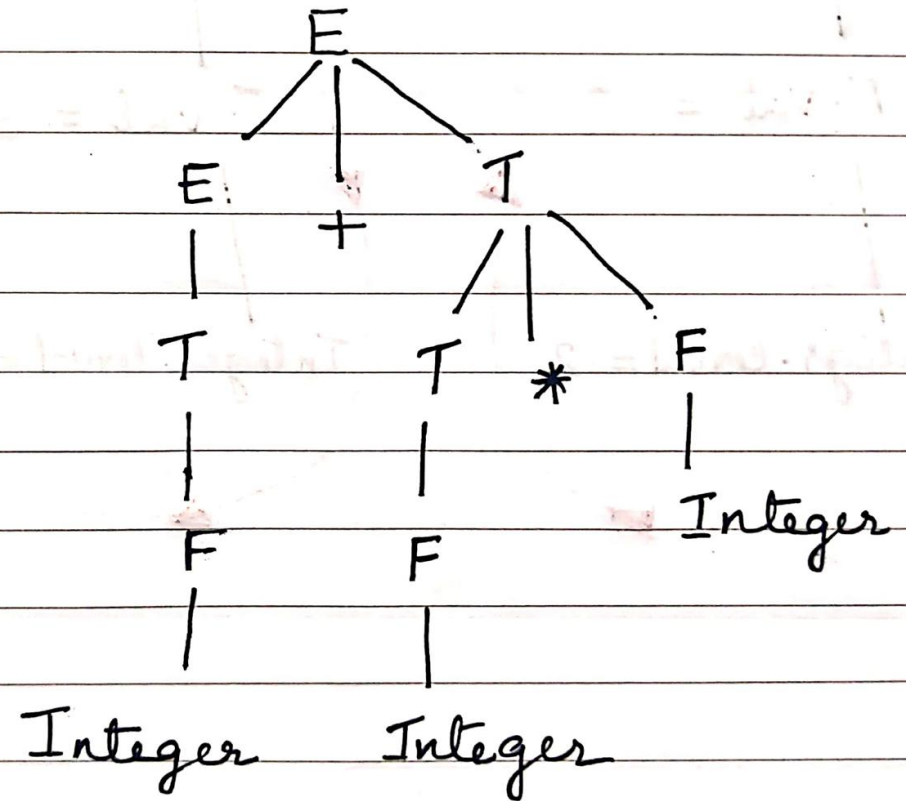 E
E + T
T T * F
F F Integer
Integer Integer